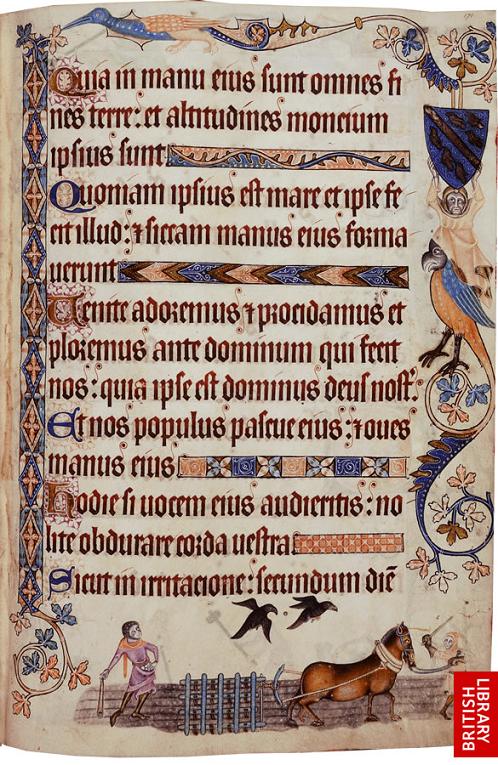 Quia in manu eius sunt omnes fi
nes terre: et altitudines moncium
ipsius sunt
Quoniam ipsius est mare et ipse fe
cit illud: ⁊ siccam manus eius forma
uerunt
Uenite adoremus ⁊ procidamus et
ploremus ante dominum qui fecit
nos: quia ipse est dominus deus nost᷑.
Et nos populus pascue eius: ⁊ oues
manus eius
hodie si uocem eius audieritis: no
lite obdurare corda uestra
Sicut in irritacione: secundum diē
BRITISH
LIBRARY